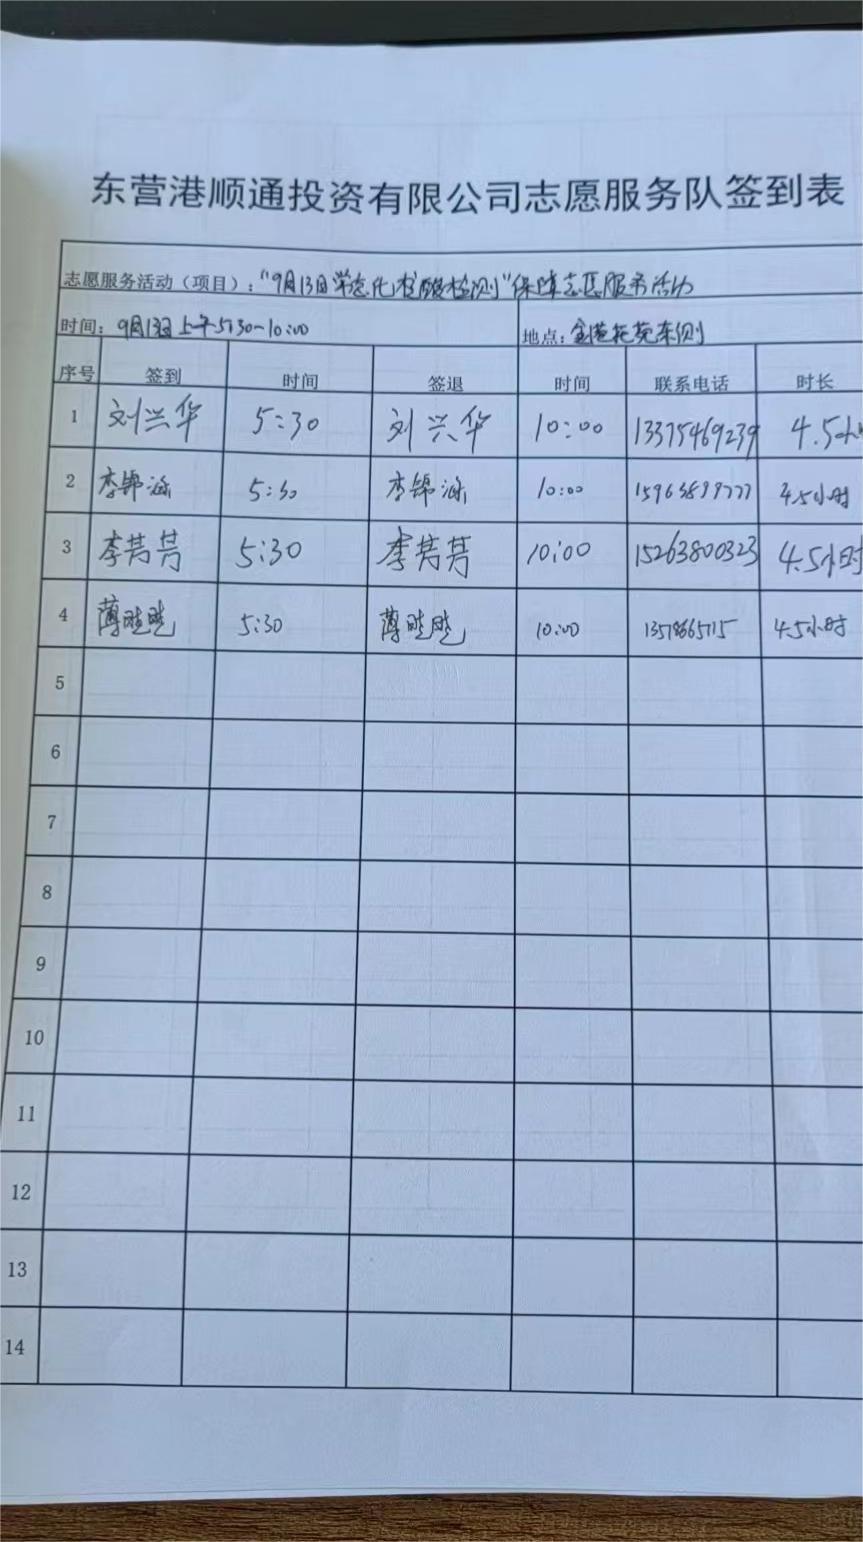 东营港顺通投资有限公司志愿服务队签到表
志愿服务活动（项目）：“9月13日常态化核酸检测”保障志愿服务活动
时间：9月13日上午5:30-10:00 地点：金港花苑东侧
序号 签到 时间 签退 时间 联系电话 时长
1 刘兴华 5:30 刘兴华 10:00 13375469239 4.5小
2 李锦涵 5:30 李锦涵 10:00 4.5小时
3 李芳芳 5:30 李芳芳 10:00 15263800323 4.5小时
4 薄晓晓 5:30 薄晓晓 10:00 4.5小时
5
6
7
8
9
10
11
12
13
14